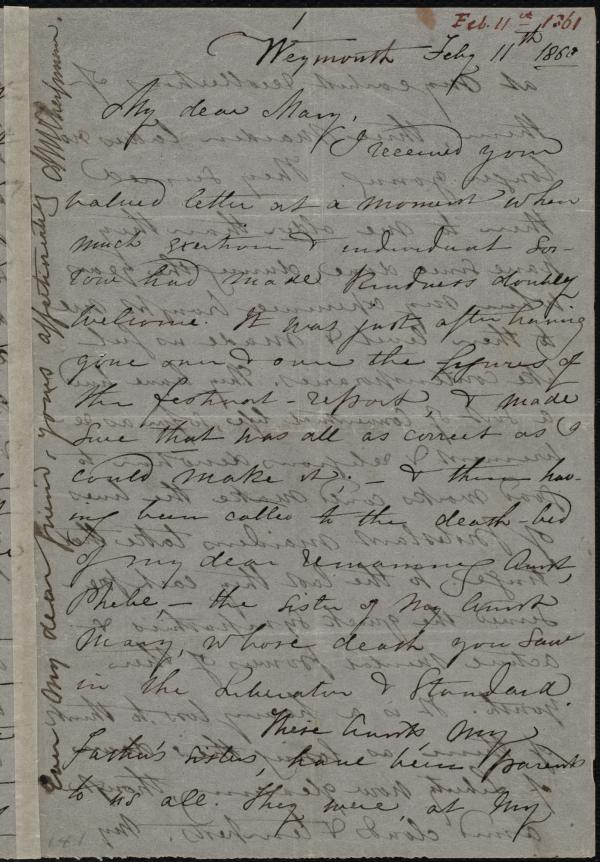 1
Feb. 11th 1861
Weymouth Feby 11th 1860
My dear Mary,
I received your
valued letter at a moment when
much exertion & individual sor-
row had made kindness doubly
welcome. It was just after having
gone over & over the figures of
the festival-report, & made
sure that was all as correct as I
could make it; - & then hav-
ing been called to the death-bed
of my dear remaining Aunt,
Phebe, - the sister of my Aunt
Mary, whose death you saw
in the Liberator & Standard.
These Aunts, my
Father's sisters, have been parents
to us all. They were, at my
Ever my dear friend, yours affectionately
M W Chapman.
141